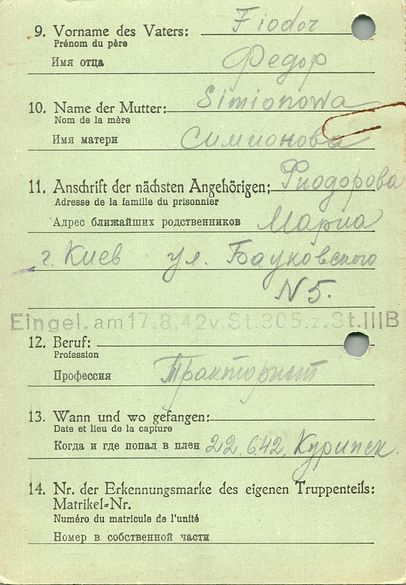 9. Vorname des Vaters: Fiodor
Prénom du père
Имя отца Федор
10. Name der Mutter: Simionowa
Nom de la mère
Имя матери Симионова
11. Anschrift der nächsten Angehörigen: Фиодорова
Adresse de la famille du prisonnier
Адрес ближайших родственников Мариа
г. Киев ул. Бауковского
N5.
Eingel. am 17.8.42 v. St. 305. z. St. IIIB
12. Beruf:
Profession
Профессия Тракторист
13. Wann und wo gefangen:
Date et lieu de la capture
Когда и где попал в плен 22.6.42, Курипск.
14. Nr. der Erkennungsmarke des eigenen Truppenteils:
Matrikel-Nr.
Numéro du matricule de l'unité
Номер в собственной части